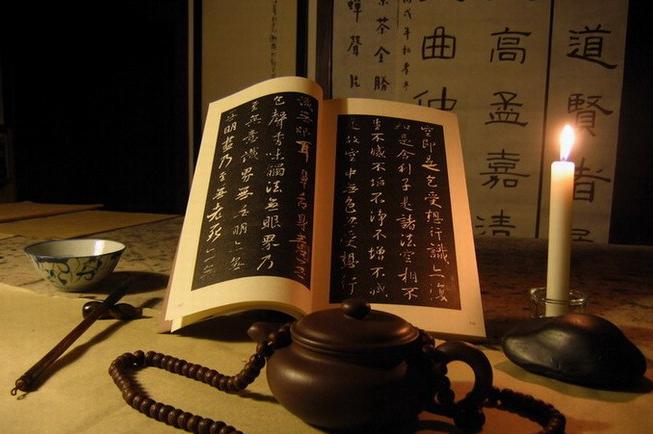 道賢者
高孟嘉清
曲仲
茶全勝
蟬聲片
空即是色受想行識亦復
如是舍利子是諸法空相不
生不滅不垢不淨不增不減
是故空中無色無受想行
識無眼耳鼻舌身意無
色聲香味觸法無眼界乃
至無意識界無無明亦無
無明盡乃至無老死亦